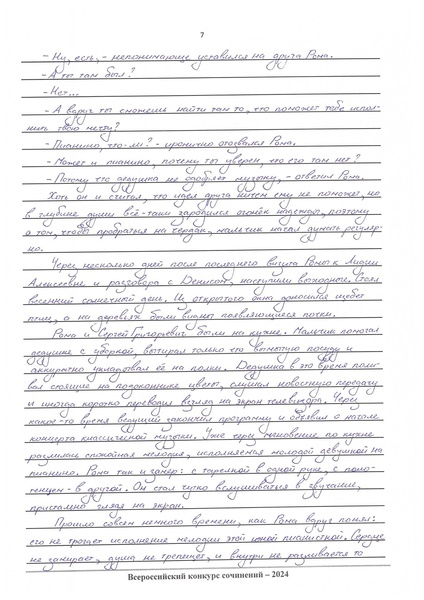 7
- Ну, есть, - непонимающе уставился на друга Рома.
- А ты там был?
- Нет...
- А вдруг ты сможешь найти там то, что поможет тебе испол-
нить твою мечту?
- Пианино, что ли? - иронично отозвался Рома.
- Может и пианино, почему ты уверен, что его там нет?
- Потому что дедушка не одобряет музыку, - ответил Рома.
Хоть он и считал, что идея друга ничем ему не поможет, но
в глубине души всё-таки зародился огонёк надежды, поэтому
о том, чтобы пробраться на чердак, мальчик начал думать регуляр-
но.
Через несколько дней после последнего визита Ромы к Лидии
Алексеевне и разговора с Денисом, наступили выходные. Стоял
весенний солнечный день. Из открытого окна доносился щебет
птиц, а на деревьях были видны появляющиеся почки.
Рома и Сергей Григорьевич были на кухне. Мальчик помогал
дедушке с уборкой, вытирал только что вымытую посуду и
аккуратно укладывал её на полки. Дедушка в это время поли-
вал стоящие на подоконнике цветы, слушал новостную передачу
и иногда коротко переводил взгляд на экран телевизора. Через
какое-то время ведущий закончил программу и объявил о начале
концерта классической музыки. Уже через мгновение по кухне
разлилась спокойная мелодия, исполняемая молодой девушкой на
пианино. Рома так и замер: с тарелкой в одной руке, с поло-
тенцем - в другой. Он стал чутко вслушиваться в звучание,
пристально глядя на экран.
Прошло совсем немного времени, как Рома вдруг понял:
его не трогает исполнение мелодии этой юной пианисткой. Сердце
не замирает, душа не трепещет, и внутри не разливается то
Всероссийский конкурс сочинений – 2024